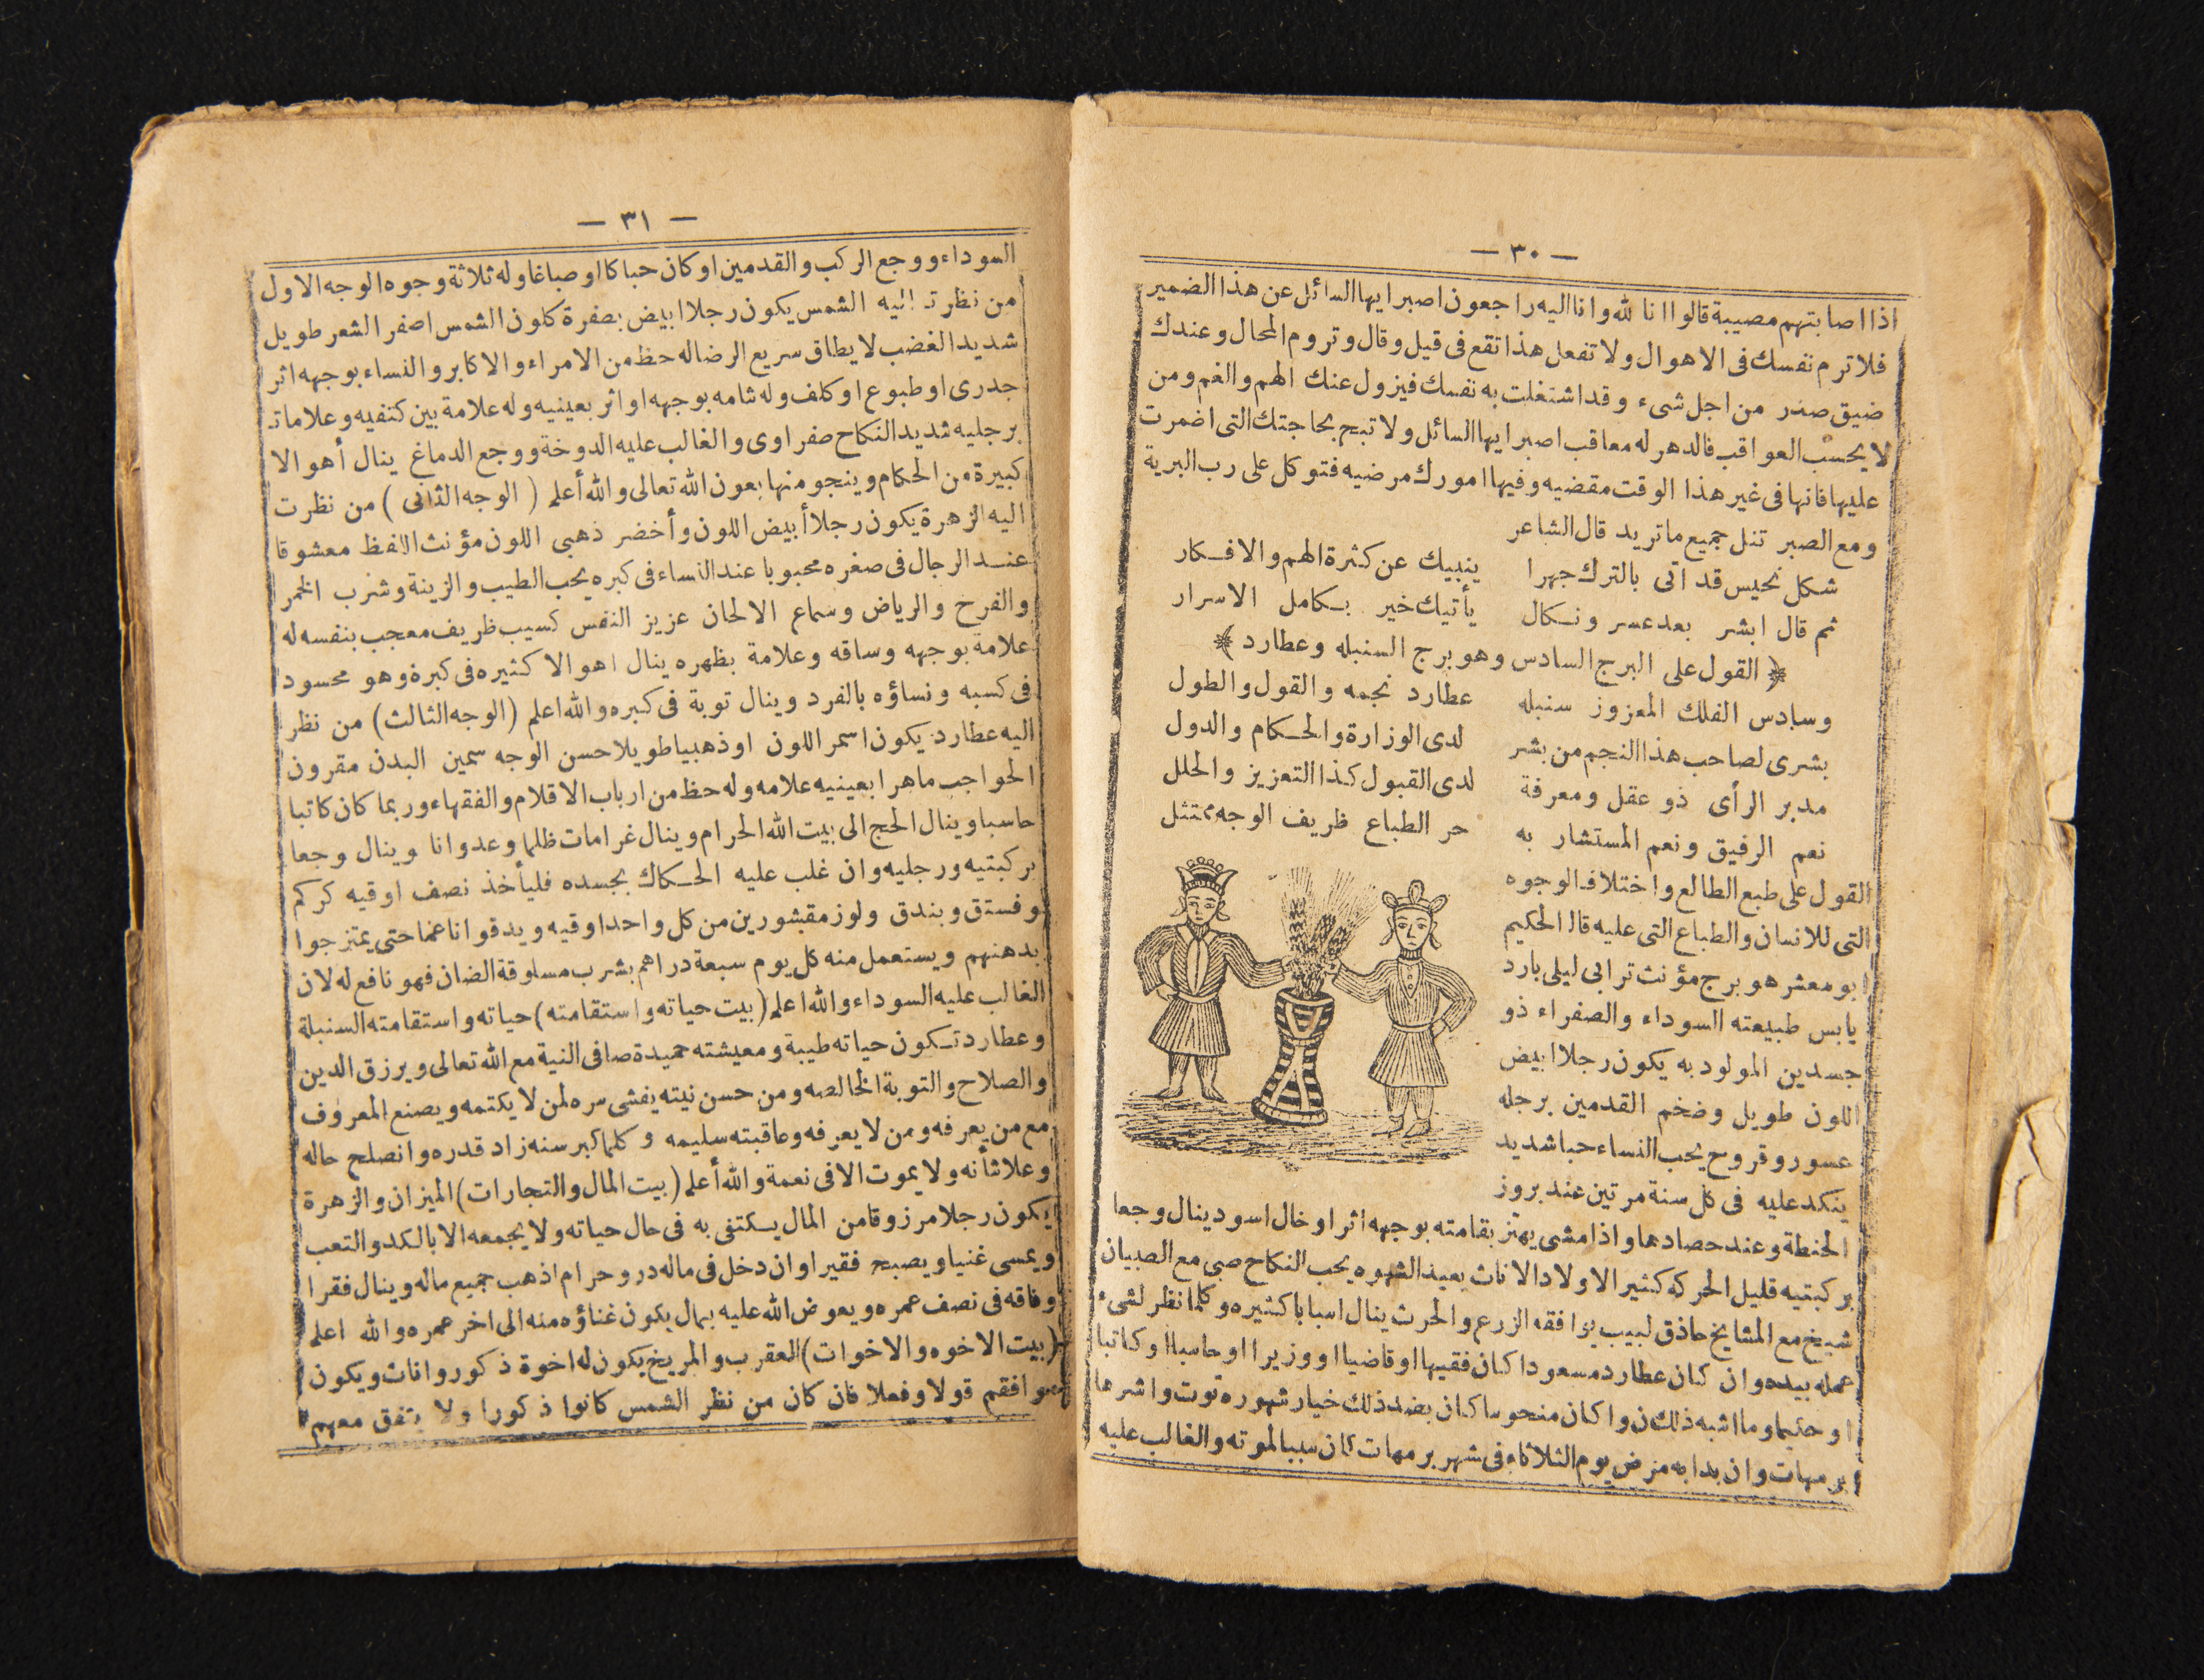 — ٣٠ —
اذا اصابتهم مصيبة قالوا انا لله وانا اليه راجعون اصبر ايها السائل عن هذا الضمير
فلا ترم نفسك فى الاهوال ولا تفعل هذا تقع فى قيل وقال وتروم المحال وعندك
ضيق صدر من اجل شىء وقد اشتغلت به نفسك فيزول عنك الهم والغم ومن
لا يحسب العواقب فالدهر له معاقب اصبر ايها السائل ولا تبح بحاجتك التى اضمرت
عليها فانها فى غير هذا الوقت مقضيه وفيها امورك مرضيه فتوكل على رب البرية
ومع الصبر تنل جميع ما تريد قال الشاعر
شكل نحيس قد اتى بالترك جهرا ينبيك عن كثرة الهم والافكار
ثم قال ابشر بعد عسر ونكال يأتيك خير بكامل الاسرار
﴿ القول على البرج السادس وهو برج السنبله وعطارد ﴾
وسادس الفلك المعزوز سنبله عطارد نجمه والقول والطول
بشرى لصاحب هذا النجم من بشر لدى الوزارة والحكام والدول
مدبر الرأى ذو عقل ومعرفة لدى القبول كذا التعزيز والحلل
نعم الرفيق ونعم المستشار به حر الطباع ظريف الوجه ممتثل
القول على طبع الطالع واختلاف الوجوه
التى للانسان والطباع التى عليه قال الحكيم
ابو معشر هو برج مؤنث ترابى ليلى بارد
يابس طبيعته السوداء والصفراء ذو
جسدين المولود به يكون رجلا ابيض
اللون طويل وضخم القدمين برجله
عسور وقروح يحب النساء حبا شديد
ينكد عليه فى كل سنة مرتين عند بروز
الحنطة وعند حصادها واذا مشى يهتز بقامته بوجهه اثر او خال اسود ينال وجعا
بركبتيه قليل الحركه كثير الاولاد الاناث بعيد الشهوه يحب النكاح صبى مع الصبيان
شيخ مع المشايخ حاذق لبيب يوافقه الزرع والحرث ينال اسبابا كثيره وكلما نظر لشىء
عمله بيده وان كان عطارد مسعودا كان فقيها او قاضيا او وزيرا او حاسبا او كاتبا
او حكيما وما اشبه ذلك ن وا كان منحوسا كان بضد ذلك خيار شهوره توت واشرها
برمهات وان بدا به مرض يوم الثلاثاء فى شهر برمهات كان سببا لموته والغالب عليه
— ٣١ —
السوداء ووجع الركب والقدمين او كان حباكا او صباغا وله ثلاثة وجوه الوجه الاول
من نظرت اليه الشمس يكون رجلا ابيض بصفرة كلون الشمس اصفر الشعر طويل
شديد الغضب لا يطاق سريع الرضا له حظ من الامراء والاكابر والنساء بوجهه اثر
جدرى او طبوع او كلف وله شامه بوجهه او اثر بعينيه وله علامة بين كتفيه وعلامات
برجليه شديد النكاح صفراوى والغالب عليه الدوخة ووجع الدماغ ينال أهوالا
كبيرة من الحكام وينجو منها بعون الله تعالى والله أعلم ( الوجه الثانى ) من نظرت
اليه الزهرة يكون رجلا أبيض اللون وأخضر ذهبى اللون مؤنث اللفظ معشوقا
عند الرجال فى صغره محبوبا عند النساء فى كبره يحب الطيب والزينة وشرب الخمر
والفرح والرياض وسماع الالحان عزيز النفس كسيب ظريف معجب بنفسه له
علامة بوجهه وساقه وعلامة بظهره ينال اهوالا كثيره فى كبرة وهو محسود
فى كسبه ونساؤه بالفرد وينال توبة فى كبره والله اعلم (الوجه الثالث) من نظر
اليه عطارد يكون اسمر اللون او ذهبيا طويلا حسن الوجه سمين البدن مقرون
الحواجب ماهرا بعينيه علامه وله حظ من ارباب الاقلام والفقهاء وربما كان كاتبا
حاسبا وينال الحج الى بيت الله الحرام وينال غرامات ظلما وعدوانا وينال وجعا
بركبتيه ورجليه وان غلب عليه الحكاك بجسده فليأخذ نصف اوقيه كركم
وفستق وبندق ولوز مقشورين من كل واحد اوقيه ويدقوا ناعما حتى يمتزجوا
بدهنهم ويستعمل منه كل يوم سبعة دراهم بشرب مسلوقة الضان فهو نافع له لان
الغالب عليه السوداء والله اعلم (بيت حياته واستقامته) حياته واستقامته السنبلة
وعطارد تكون حياته طيبة ومعيشته حميدة صافى النية مع الله تعالى ويرزق الدين
والصلاح والتوبة الخالصه ومن حسن نيته يفشى سره لمن لا يكتمه ويصنع المعروف
مع من يعرفه ومن لا يعرفه وعاقبته سليمه وكلما كبر سنه زاد قدره وانصلح حاله
وعلا شأنه ولا يموت الا فى نعمة والله أعلم (بيت المال والتجارات) الميزان والزهرة
يكون رجلا مرزوقا من المال يكتفى به فى حال حياته ولا يجمعه الا بالكد والتعب
ويمسى غنيا ويصبح فقيرا وان دخل فى ماله درهم حرام اذهب جميع ماله وينال فقرا
وفاقه فى نصف عمره ويعوض الله عليه بمال يكون غناؤه منه الى اخر عمره والله اعلم
(بيت الاخوه والاخوات) العقرب والمريخ يكون له اخوة ذكور واناث ويكون
موافقم قولا وفعلا فان كان من نظر الشمس كانوا ذكورا ولا يتفق معهم